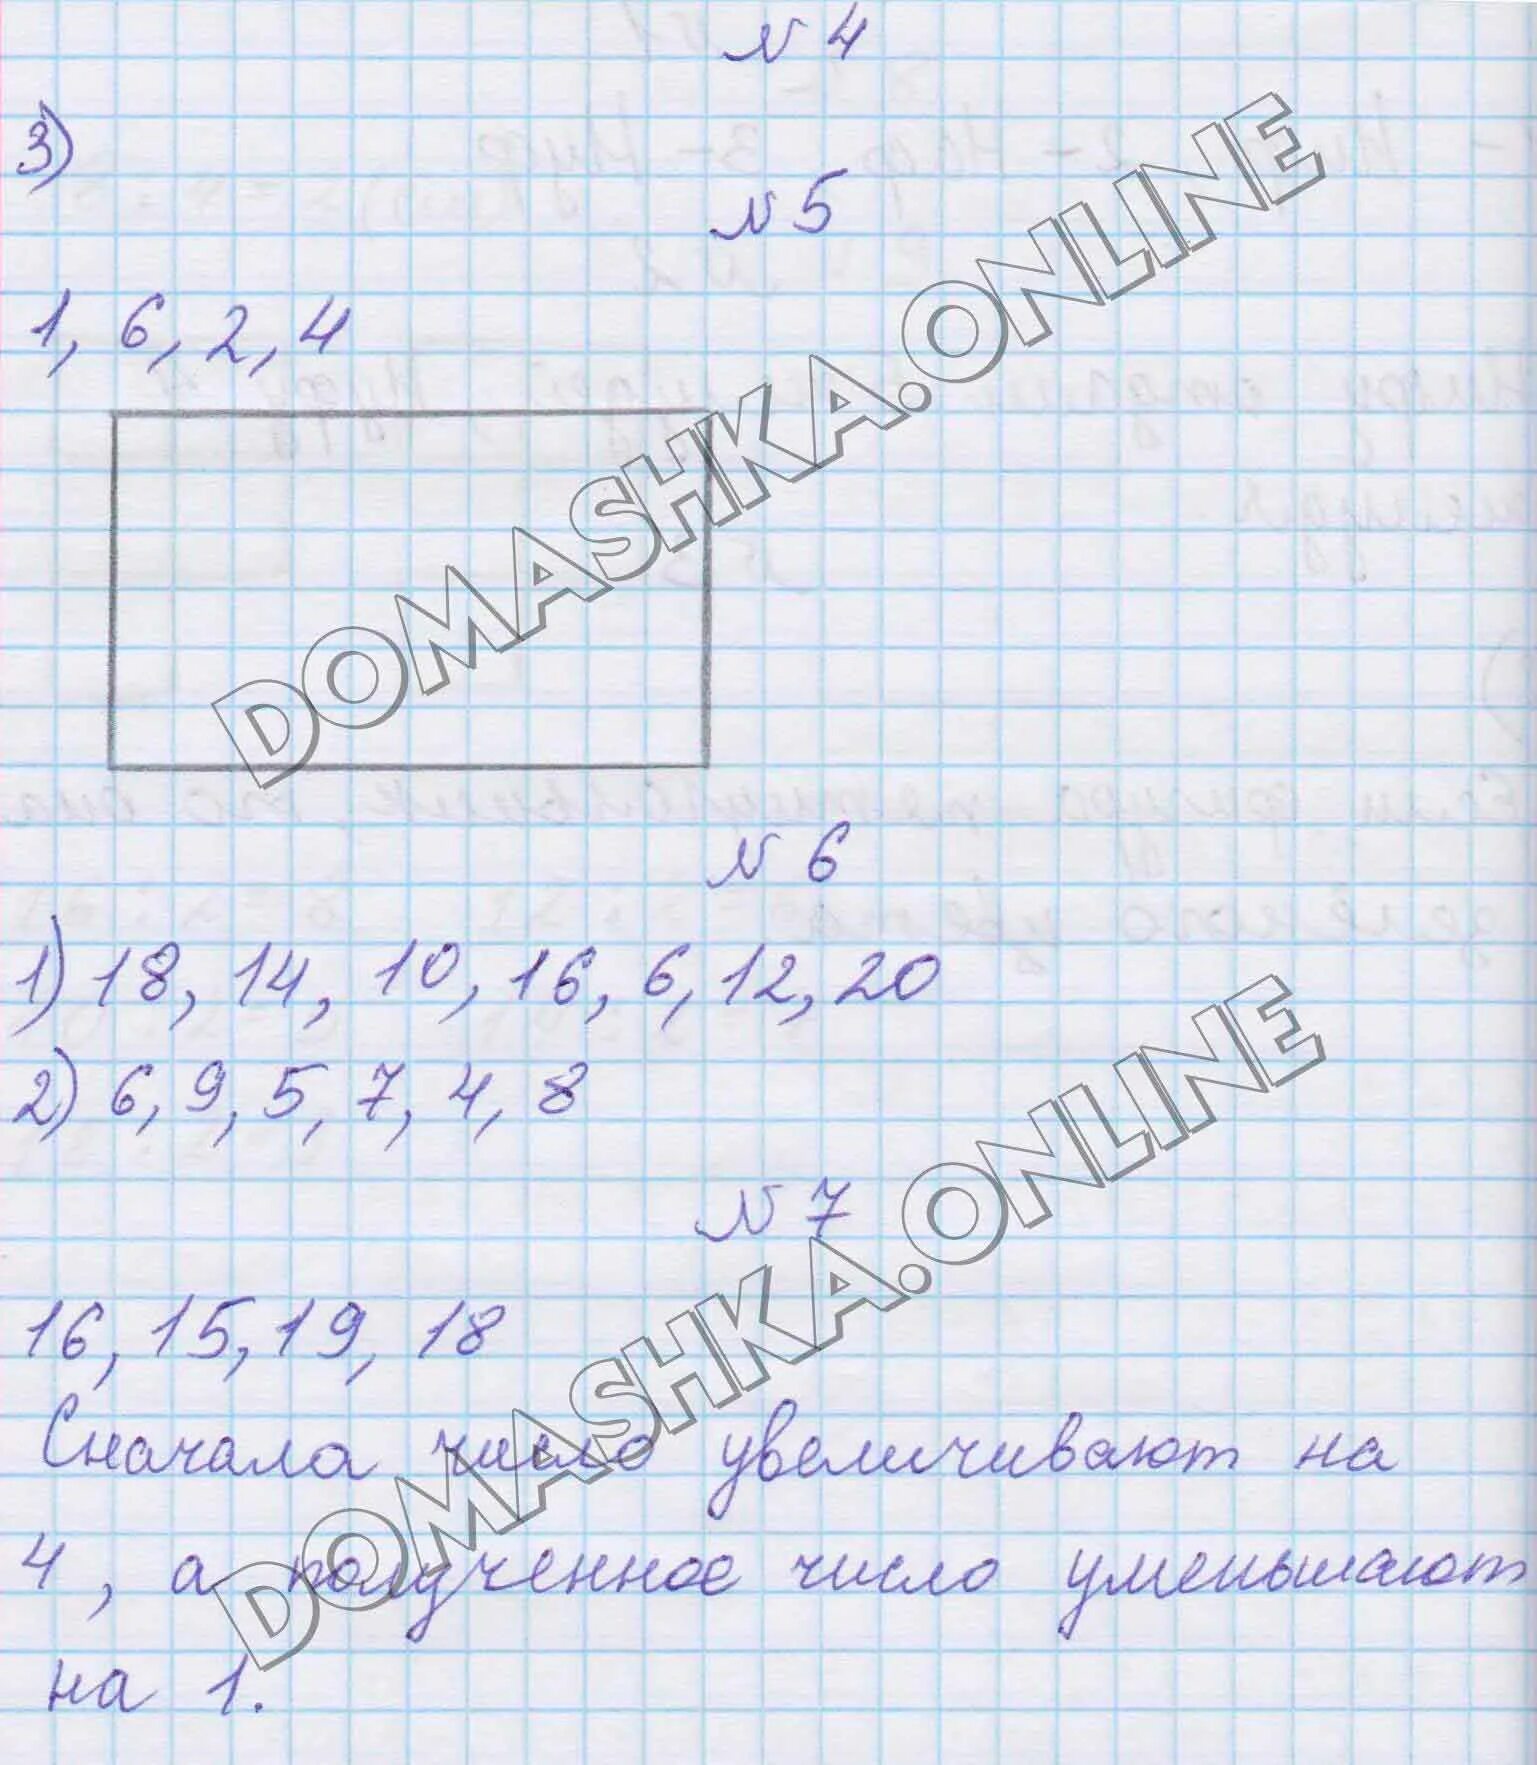 № 4
3)
№ 5
1, 6, 2, 4
№ 6
1) 18, 14, 10, 16, 6, 12, 20
2) 6, 9, 5, 7, 4, 8
№ 7
16, 15, 19, 18
Сначала число увеличивают на
4, а полученное число уменьшают
на 1.
DOMASHKA.ONLINE
DOMASHKA.ONLINE